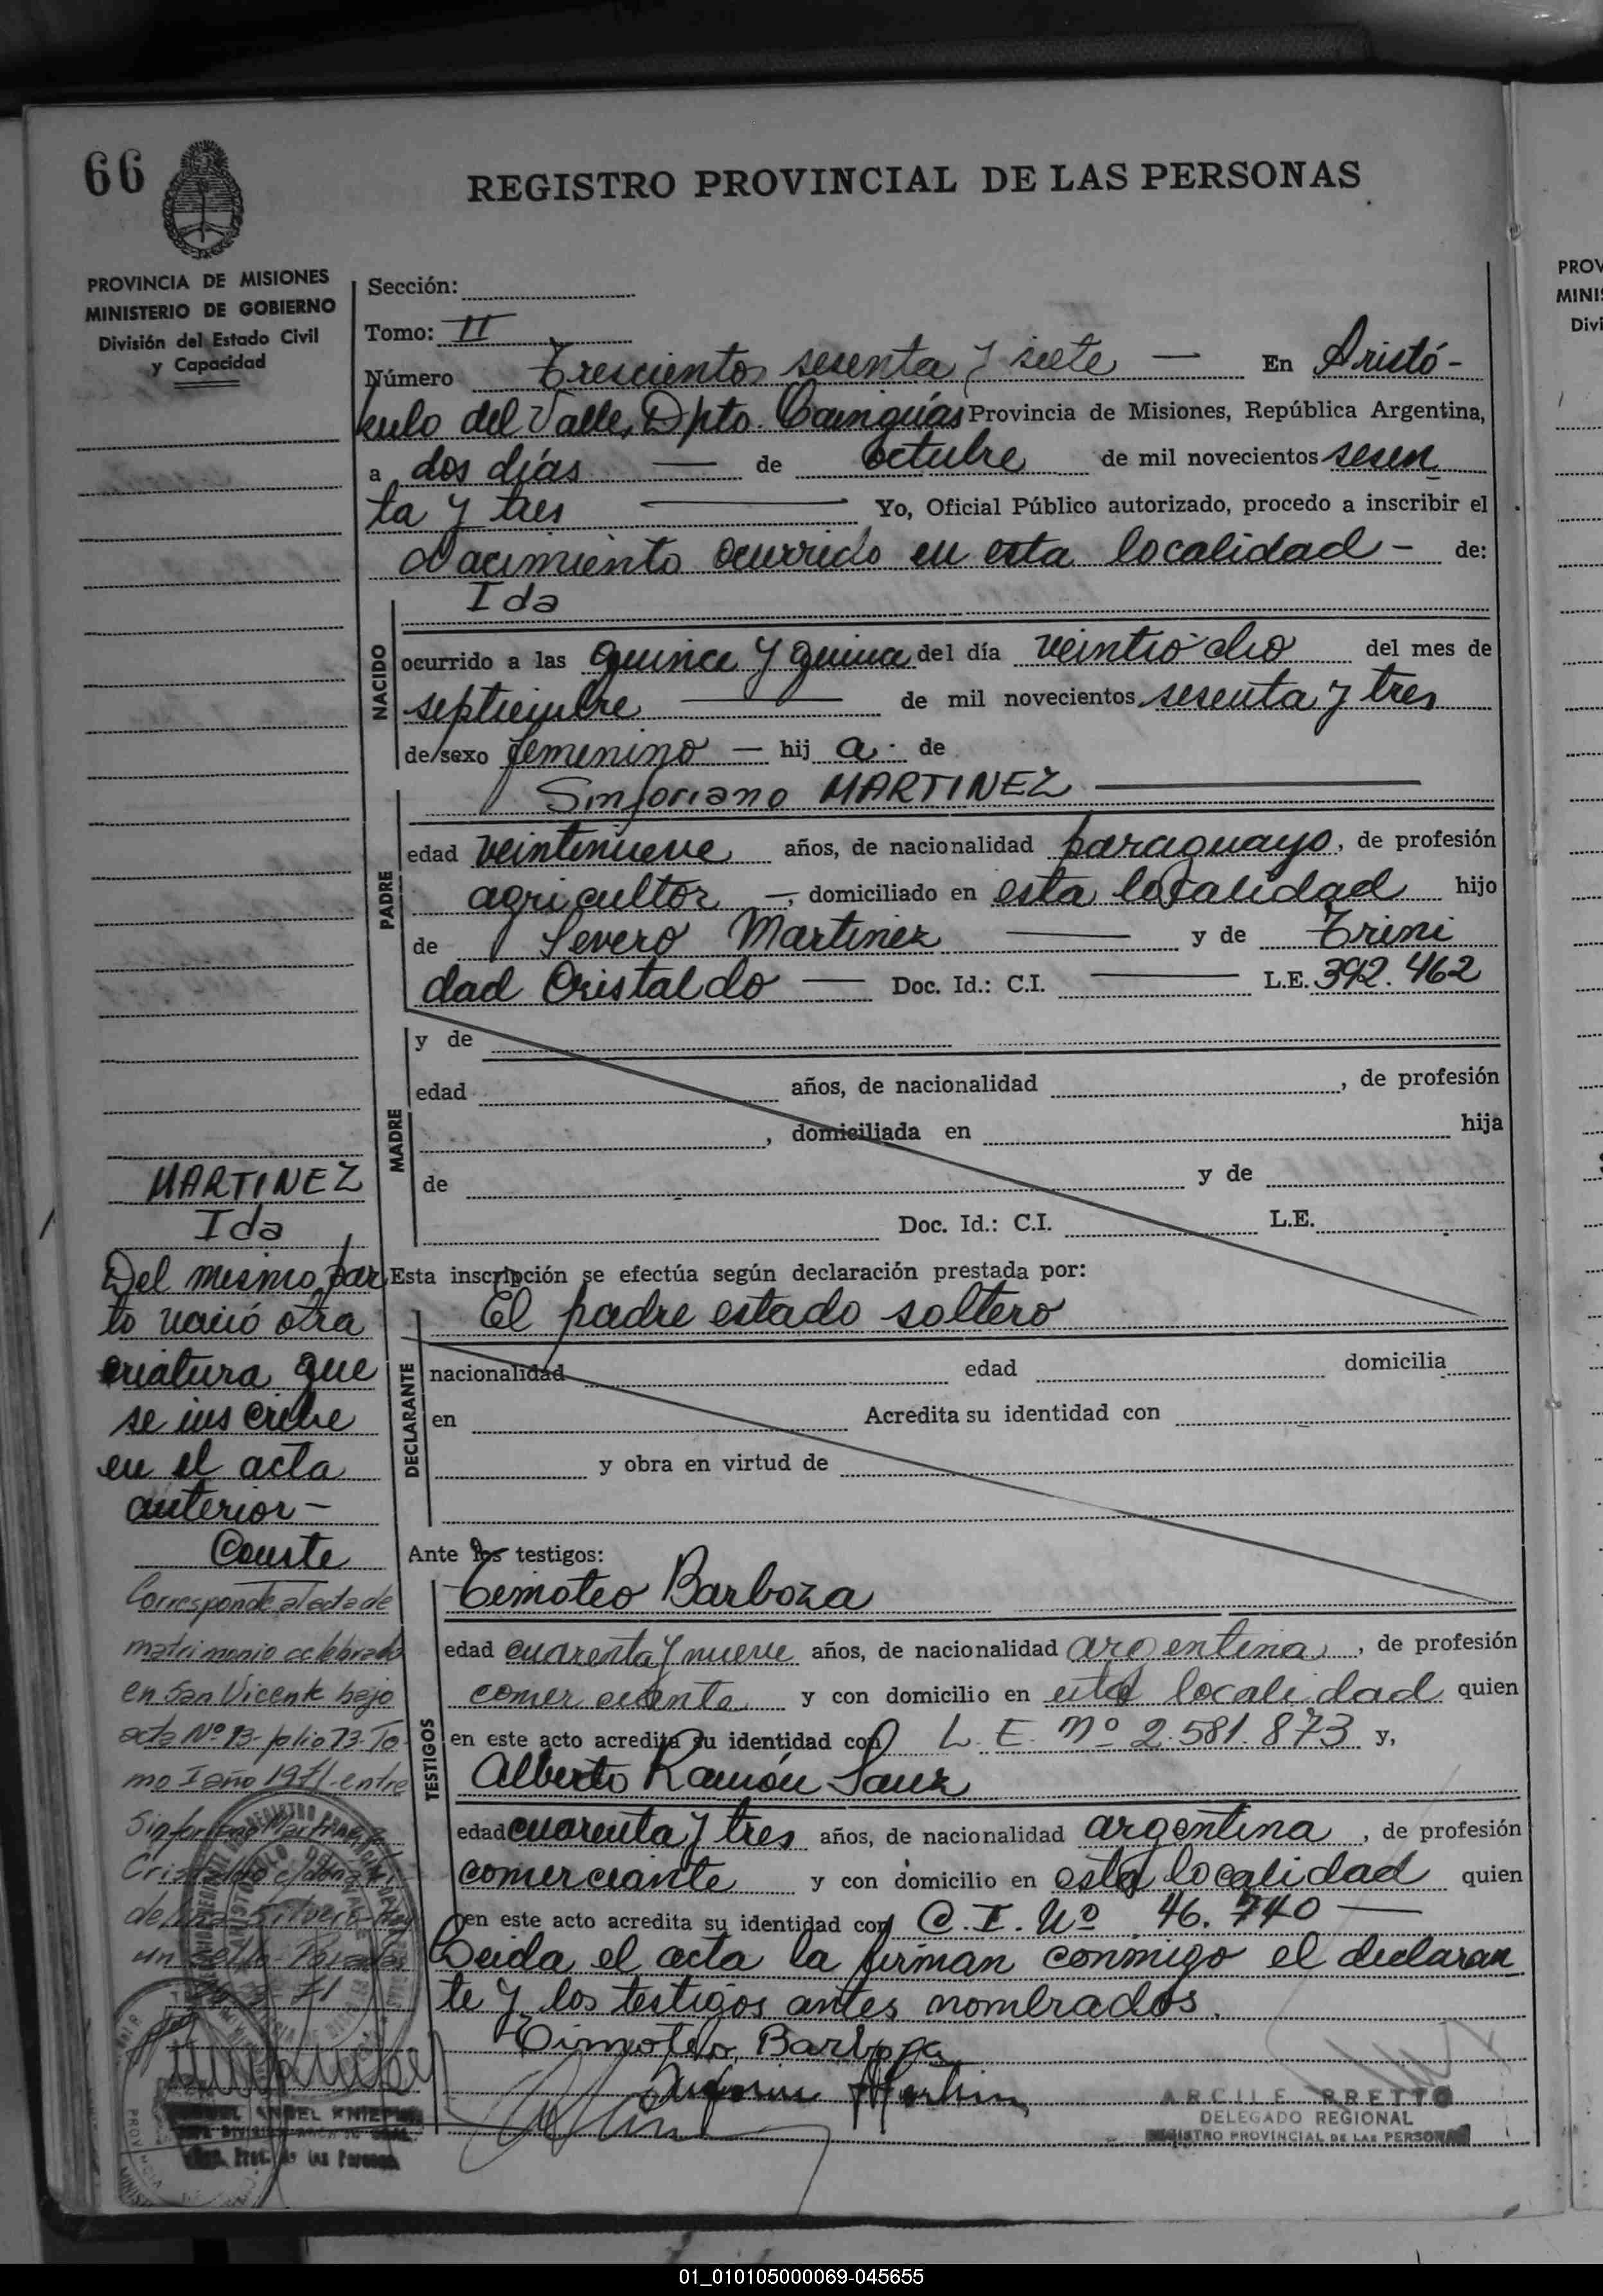 66
REGISTRO PROVINCIAL DE LAS PERSONAS
PROVINCIA DE MISIONES
MINISTERIO DE GOBIERNO
División del Estado Civil
y Capacidad
Sección:
Tomo: II
Número Trescientos sesenta y siete — En Aristó-
bulo del Valle, Dpto. Cainguás Provincia de Misiones, República Argentina,
a dos días — de octubre de mil novecientos sesen
ta y tres — Yo, Oficial Público autorizado, procedo a inscribir el
Nacimiento ocurrido en esta localidad - de:
Ida
NACIDO
ocurrido a las quince y quince del día veintiocho del mes de
septiembre — de mil novecientos sesenta y tres
de sexo femenino — hij a. de
Sinforiano MARTINEZ —
PADRE
edad veintinueve años, de nacionalidad paraguayo, de profesión
agricultor —, domiciliado en esta localidad hijo
de Severo Martinez — y de Trini
dad Cristaldo — Doc. Id.: C.I. — L.E. 392.462
MADRE
y de
edad años, de nacionalidad , de profesión
, domiciliada en hija
de y de
Doc. Id.: C.I. L.E.
Esta inscripción se efectúa según declaración prestada por:
El padre estado soltero
DECLARANTE
nacionalidad edad domicilia
en Acredita su identidad con
y obra en virtud de
Ante los testigos:
TESTIGOS
Timoteo Barboza
edad cuarenta y nueve años, de nacionalidad argentina, de profesión
comerciante y con domicilio en esta localidad quien
en este acto acredita su identidad con L. E. Nº 2.581.873 y,
Alberto Ramón Sanz
edad cuarenta y tres años, de nacionalidad argentina, de profesión
comerciante y con domicilio en esta localidad quien
en este acto acredita su identidad con C. I. Nº 46.740 —
Leida el acta la firman conmigo el declaran
te y los testigos antes nombrados.
Timoteo Barboza
ARCILE BRETTO
DELEGADO REGIONAL
REGISTRO PROVINCIAL DE LAS PERSONAS
MARTINEZ
Ida
Del mismo par
to nació otra
criatura que
se inscribe
en el acta
anterior -
Conste
Corresponde al acta de
matrimonio celebrado
en San Vicente bajo
acta Nº 13 folio 73 To
mo I año 1971 entre
Sinforiano Martinez
PROV
MINIS
Divi
01_010105000069-045655